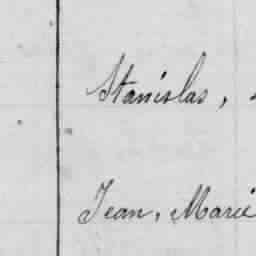 Stanislas,
Jean, Marie